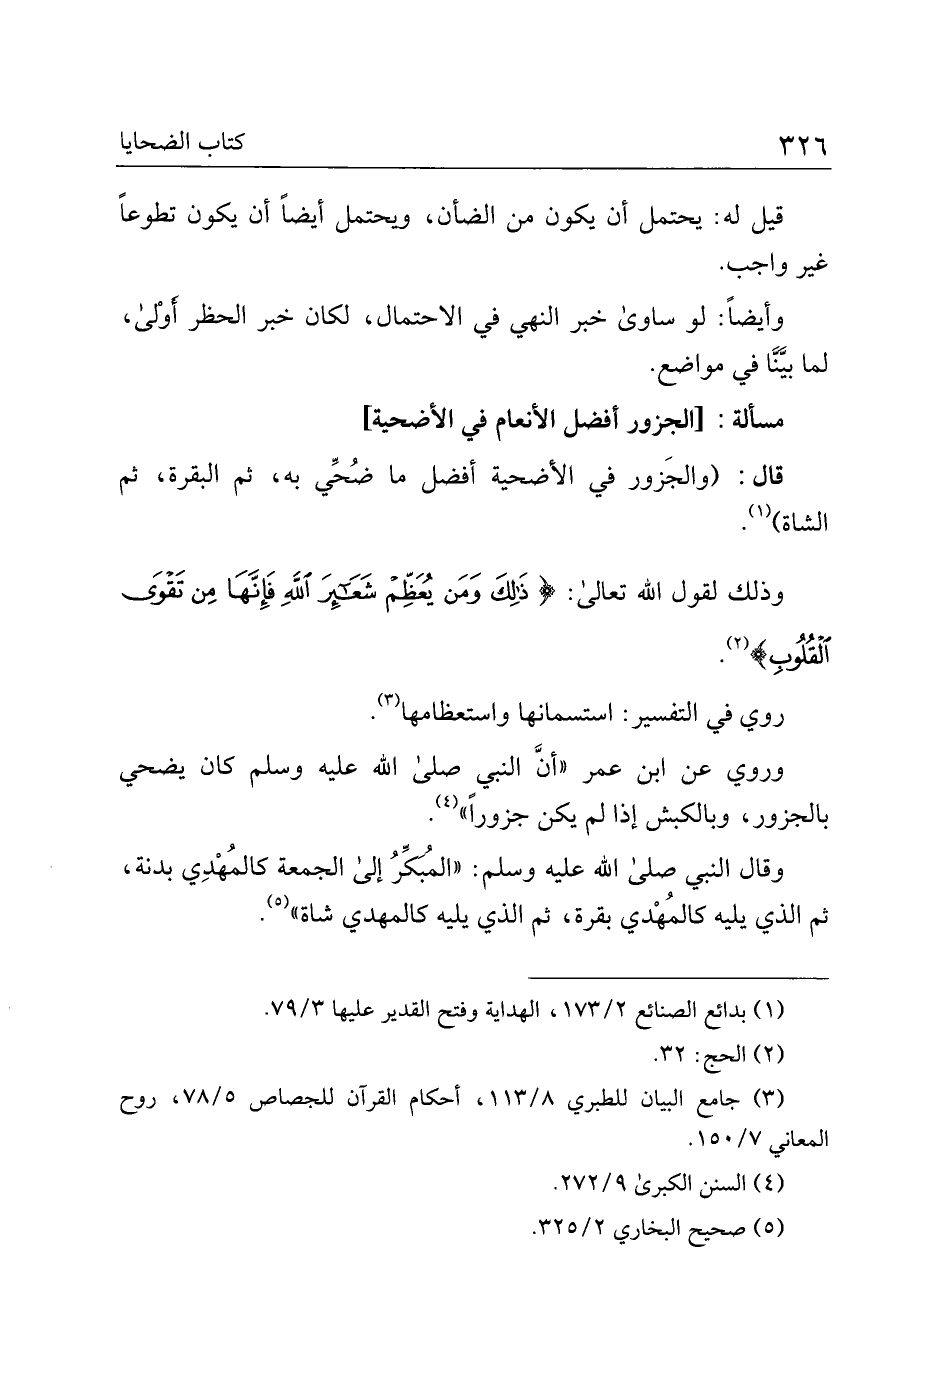 ٣٢٦ كتاب الضحايا
قيل له: يحتمل أن يكون من الضأن، ويحتمل أيضاً أن يكون تطوعاً
غير واجب.
وأيضاً: لو ساوىٰ خبر النهي في الاحتمال، لكان خبر الحظر أَوْلىٰ،
لما بيَّنَّا في مواضع.
مسألة : [الجزور أفضل الأنعام في الأضحية]
قال : (والجَزور في الأضحية أفضل ما ضُحِّي به، ثم البقرة، ثم
الشاة)(١).
وذلك لقول الله تعالىٰ: ﴿ ذَٰلِكَ وَمَن يُعَظِّمْ شَعَـٰٓئِرَ ٱللَّهِ فَإِنَّهَا مِن تَقْوَى
ٱلْقُلُوبِ﴾(٢).
روي في التفسير: استسمانها واستعظامها(٣).
وروي عن ابن عمر «أنَّ النبي صلىٰ الله عليه وسلم كان يضحي
بالجزور، وبالكبش إذا لم يكن جزوراً»(٤).
وقال النبي صلىٰ الله عليه وسلم: «المُبَكِّرُ إلىٰ الجمعة كالمُهْدِي بدنة،
ثم الذي يليه كالمُهْدي بقرة، ثم الذي يليه كالمهدي شاة»(٥).
(١) بدائع الصنائع ١٧٣/٢، الهداية وفتح القدير عليها ٧٩/٣.
(٢) الحج: ٣٢.
(٣) جامع البيان للطبري ١١٣/٨، أحكام القرآن للجصاص ٧٨/٥، روح
المعاني ١٥٠/٧.
(٤) السنن الكبرىٰ ٢٧٢/٩.
(٥) صحيح البخاري ٣٢٥/٢.